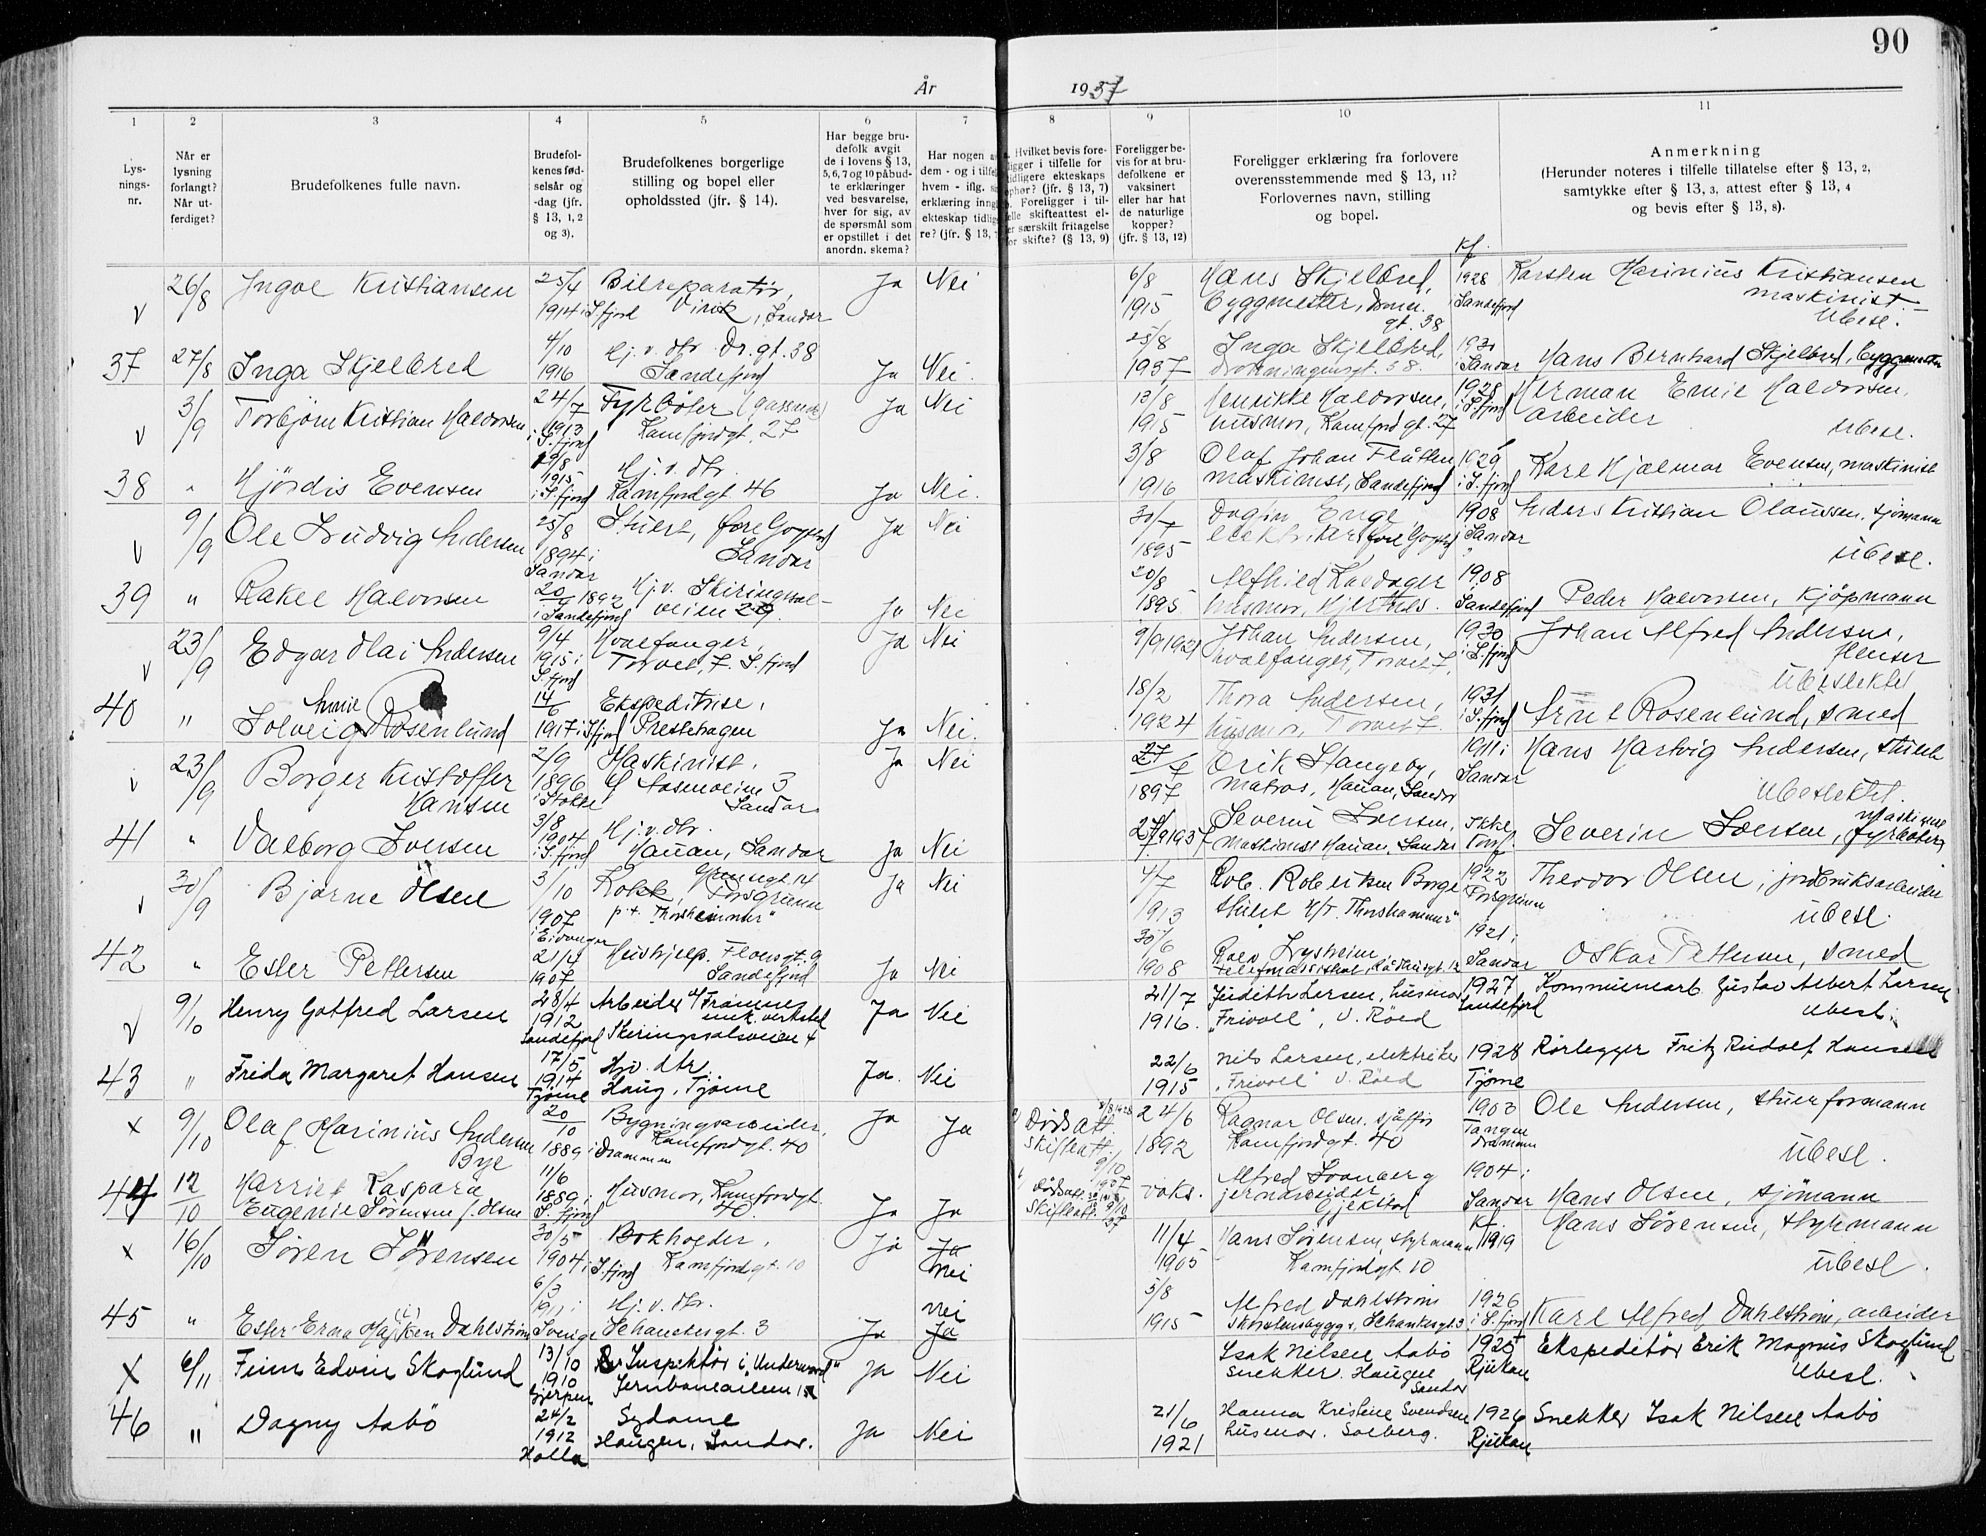 90
År 1937
1 2 3 4 5 6 7 8 9 10 11
Lys-
nings-
nr.
Når er
lysning
forlangt?
Når ut-
ferdiget?
Brudefolkenes fulle navn.
Brudefol-
kenes fød-
selsår og
-dag (jfr.
§ 13, 1, 2
og 3).
Brudefolkenes borgerlige
stilling og bopel eller
opholdssted (jfr. § 14).
Har begge bru-
defolk avgit
de i lovens § 13,
5, 6, 7 og 10 påbud-
te erklæringer
ved besvarelse,
hver for sig, av
de spørsmål som
er opstillet i det
anordn. skema?
Har nogen
dem - og i tilfel
hvem - iflg.
erklæring inng
ekteskap tidlig
re? (jfr. § 13,
Hvilket bevis fore-
ligger i tilfelle for
tidligere ekteskaps
ophør? (jfr. § 13, 7)
Foreligger i til-
felle skifteattest el-
er særskilt fritagelse
for skifte? (§ 13, 9)
Foreligger be-
vis for at bru-
defolkene er
vaksinert
eller har hat
de naturlige
kopper?
(jfr. § 13, 12)
Foreligger erklæring fra forlovere
overensstemmende med § 13, 11?
Forlovernes navn, stilling
og bopel.
Anmerkning
(Herunder noteres i tilfelle tillatelse efter § 13, 2,
samtykke efter § 13, 3, attest efter § 13, 4
og bevis efter § 13, 8).
Kf.
v 26/8 Ingve Kristiansen 25/4 1914 i S.fjord Bilreparatør, Virik, Sandar Ja Nei 6/8 1915 Hans Skjelbred, byggmester, Dronn. gt. 38 1928 Sandefjord Karsten Marinius Kristiansen maskinist. Ubesl.
37 27/8 Inga Skjelbred 4/10 1916 Hj. v. dtr. Dr.gt. 38 Sandefjord Ja Nei. 25/8 1937 Inga Skjelbred, Dronningensgt. 38. 1931 i Sandar Hans Bernhard Skjelbred, byggmester
v 3/9 Torbjørn Kristian Halvorsen 24/7 1913 i S.fjord Fyrbøter Kamfjordgt. 27 Ja Nei 12/8 1915 Henrikke Halvorsen, husmor, Kamfjordgt. 27 1928 i S.fjord Herman Emil Halvorsen, arbeider Ubesl.
38 " Hjørdis Evensen 29/8 1915 i S.fjord Hj. v. dtr. Kamfjordgt. 46 Ja Nei. 3/8 1916 Olaf Johan Fløtten maskinist, Sandefjord 1929 i S.fjord Karl Hjalmar Evensen, maskinist
v 9/9 Ole Ludvig Andersen 25/8 1894 i Sandar Stuert, Sandar Ja Nei 30/7 1895 Dagfin Enge elektriker 1908 Sandar Anders Kristian Olaussen, sjømann Ubesl.
39 " Rakel Halvorsen 20/9 1892 i Sandefjord Hj. v. Skiringssal-veien 29. Ja Nei 20/8 1895 husmor, Hjertnes. 1908 Sandefjord Peder Halvorsen, kjøpmann
v 23/9 Edgar Olai Andersen 9/4 1915 i S.fjord Hvalfanger, Torvet 7. S.fjord Ja Nei 9/9 1921 Johan Andersen, hvalfanger, Torvet 7. 1930 i S.fjord Johan Alfred Andersen, flenser Ubeslektet
40 " Solveig Annie Rosenlund 14/6 1917 i S.fjord Ekspeditrise, Prestehagen Ja Nei. 18/2 1924 Thora Andersen, husmor, Torvet 7. 1931 i S.fjord Arne Rosenlund, smed
v 23/9 Borger Kristoffer Hansen 2/9 1896 i Stokke Maskinist, Aasenveien 3 Sandar Ja Nei 27/6 1897 Erik Stangeby, Matros, Hauan, Sandar 1911 i Sandar Hans Hartvig Andersen, stuert Ubeslektet.
41 " Valborg Iversen 3/8 1904 i S.fjord Hj. v. dtr. Hauan, Sandar Ja Nei 27/9 1937 Severin Iversen, Maskinist Hauan, Sandar Ikke konf. Severin Iversen, Maskinist fyrbøter
v 30/9 Bjarne Olsen 3/10 1907 i Eidanger Kokk, Porsgrunn p.t. "Thorshammer" Ja Nei 4/7 1913 Rob. Robertsen Borge stuert M/T. "Thorshammer" 1922 Porsgrunn Theodor Olsen, jordbruksarbeider Ubesl.
42 " Ester Pettersen 21/4 1907 Hushjelp. Floensgt. 9 Sandefjord Ja Nei 30/6 1908 Rolv Lysheim Rådhusgt. 12 1921 i Sandar Oskar Pettersen, smed
v 9/10 Henry Gotfred Larsen 28/4 1912 Sandefjord Arbeider v/ Framnes mek. verksted Skiringssalsveien 4 Ja Nei 21/7 1916. Judith Larsen, husmor "Frivoll", v. Røed 1927 Sandefjord Kommunearb. Gustav Albert Larsen Ubesl.
43 " Frida Margaret Hansen 17/5 1914 Tjøme Hjv. dtr. Haug, Tjøme Ja. Nei 22/6 1915 Nils Larsen, elektriker "Frivoll" v. Røed 1928 Tjøme Rørlegger Fritz Rudolf Hansen
x 9/10 Olaf Marinius Andersen Bye 20/10 1889 i Drammen Bygningsarbeider, Kamfjordgt. 40 Ja Ja Dødsatt. Skifteatt. 9/10 24/6 1892 Ragnar Olsen, sjåfør Kamfjordgt. 40 1903 Tangen Drammen Ole Andersen, stuerformann Ubesl.
44 12/10 Harriet Kaspara Eugenie Sørensen f. Olsen 11/6 1889 i S.fjord Husmor, Kamfjordgt. 40 Ja Ja Dødsatt. Skifteatt. 9/10 37 voks. Alfred Svanberg jernarbeider Gjekstad 1904 i Sandar Hans Olsen, sjømann
x 16/10 Søren Sørensen 30/5 1904 i S.fjord Bokholder, Kamfjordgt. 10 Ja Ja Nei 11/4 1905 Hans Sørensen, styrmann Kamfjordgt. 10 Kf. 1919 Hans Sørensen, styrmann Ubesl.
45 " Ester Erna Maj(i)ken Dahlström 6/3 1911 i Sverige Hj. v. dtr. Schankesgt. 3 Ja Nei Ja 5/8 1915 Alfred Dahlström Skorstensbygger, Schankesgt. 3 1926 i S.fjord Karl Alfred Dahlström, arbeider
x 6/11 Finn Edvin Skoglund 13/10 1910 Gjerpen Inspektør i "Underwood" Jernbanealleen Ja Nei Isak Nilsen Aabö Snekker. Haugen Sandar 1925 Rjukan Ekspeditør Erik Magnus Skoglund Ubesl.
46 " Dagny Aabö 24/2 1912 Holla Sydame Haugen, Sandar. Ja Nei 21/6 1921 Hanna Kristine Svendsen husmor. Solberg. 1926 Rjukan Snekker Isak Nilsen Aabö